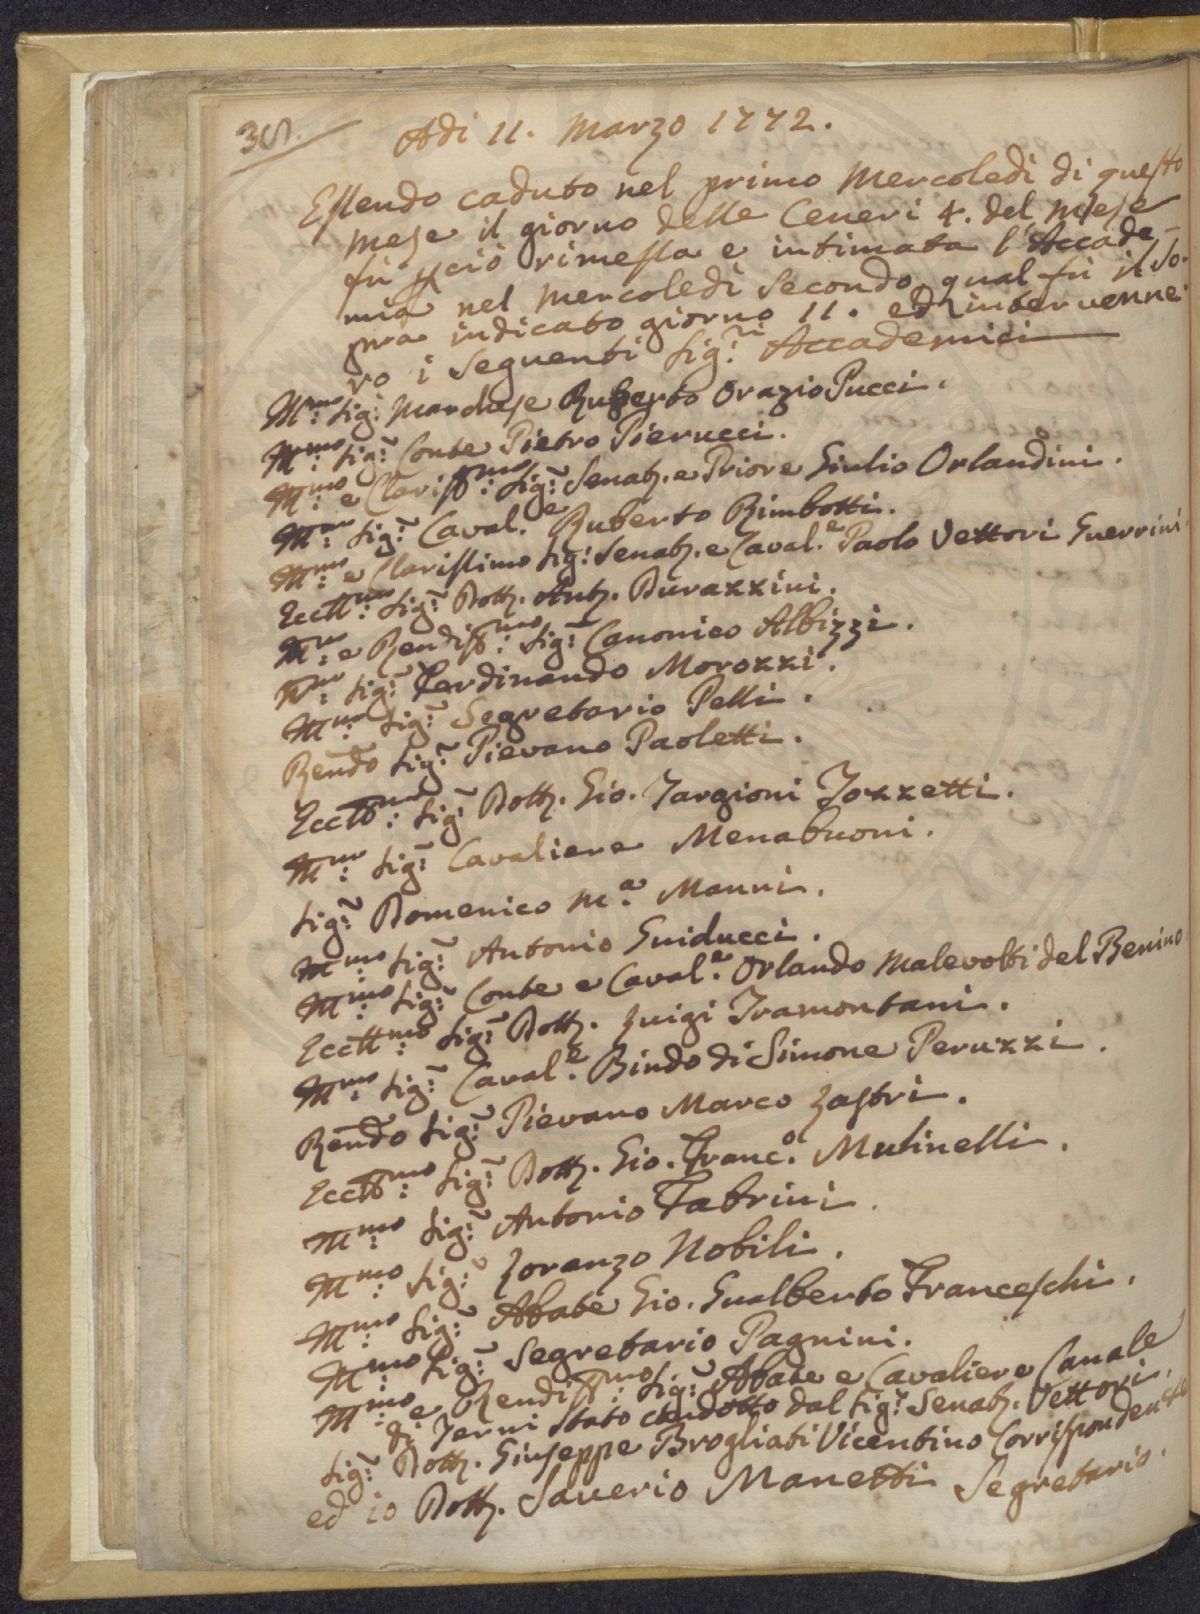 36.
Adi 11. Marzo 1772.
Essendo caduto nel primo Mercoledì di questo
mese il giorno delle Ceneri 4. del mese
fù pciò rimessa e intimata l'Accade-
mia nel Mercoledì secondo, qual fù il so-
pra indicato giorno 11. ed intervenne-
ro i seguenti Sig.ri Accademici
Ill.mo Sig.r Marchese Ruberto Orazio Pucci.
Ill.mo Sig.r Conte Pietro Pierucci.
Ill.mo e Clariss.mo Sig.r Senat. e Priore Giulio Orlandini.
Ill.mo Sig.r Caval.e Ruberto Rimbotti.
Ill.mo e Clarissimo Sig.r Senat. e Caval.e Paolo Vettori Guerrini
Eccll.mo Sig.r Dott. Ant. Durazzini.
Ill.mo e Rendiss.mo Sig.r Canonico Albizzi.
Ill.mo Sig.r Ferdinando Morozzi.
Ill.mo Sig.r Segretario Pelli.
Rendo Sig.r Pievano Paoletti.
Eccll.mo Sig.r Dott. Gio. Targioni Tozzetti.
Ill.mo Sig.r Cavaliere Menabuoni.
Sig.r Domenico M.a Manni.
Ill.mo Sig.r Antonio Guiducci.
Ill.mo Sig.r Conte e Caval.e Orlando Malevolti del Benino
Eccll.mo Sig.r Dott. Luigi Tramontani.
Ill.mo Sig.r Caval.e Bindo di Simone Peruzzi.
Rendo Sig.r Pievano Marco Lastri.
Eccll.mo Sig.r Dott. Gio. Franc.o Mulinelli.
Ill.mo Sig.r Antonio Fabrini.
Ill.mo Sig.r Lorenzo Nobili.
Ill.mo Sig.r Abate Gio. Gualberto Franceschi.
Ill.mo Sig.r Segretario Pagnini.
Ill.mo e Rendiss.mo Sig.r Abate e Cavaliere Canale
di Terni stato condotto dal Sig.r Senat. Vettori.
Sig.r Dott. Giuseppe Brogliati Vicentino Corrispondente
ed io Dott. Saverio Manetti Segretario.